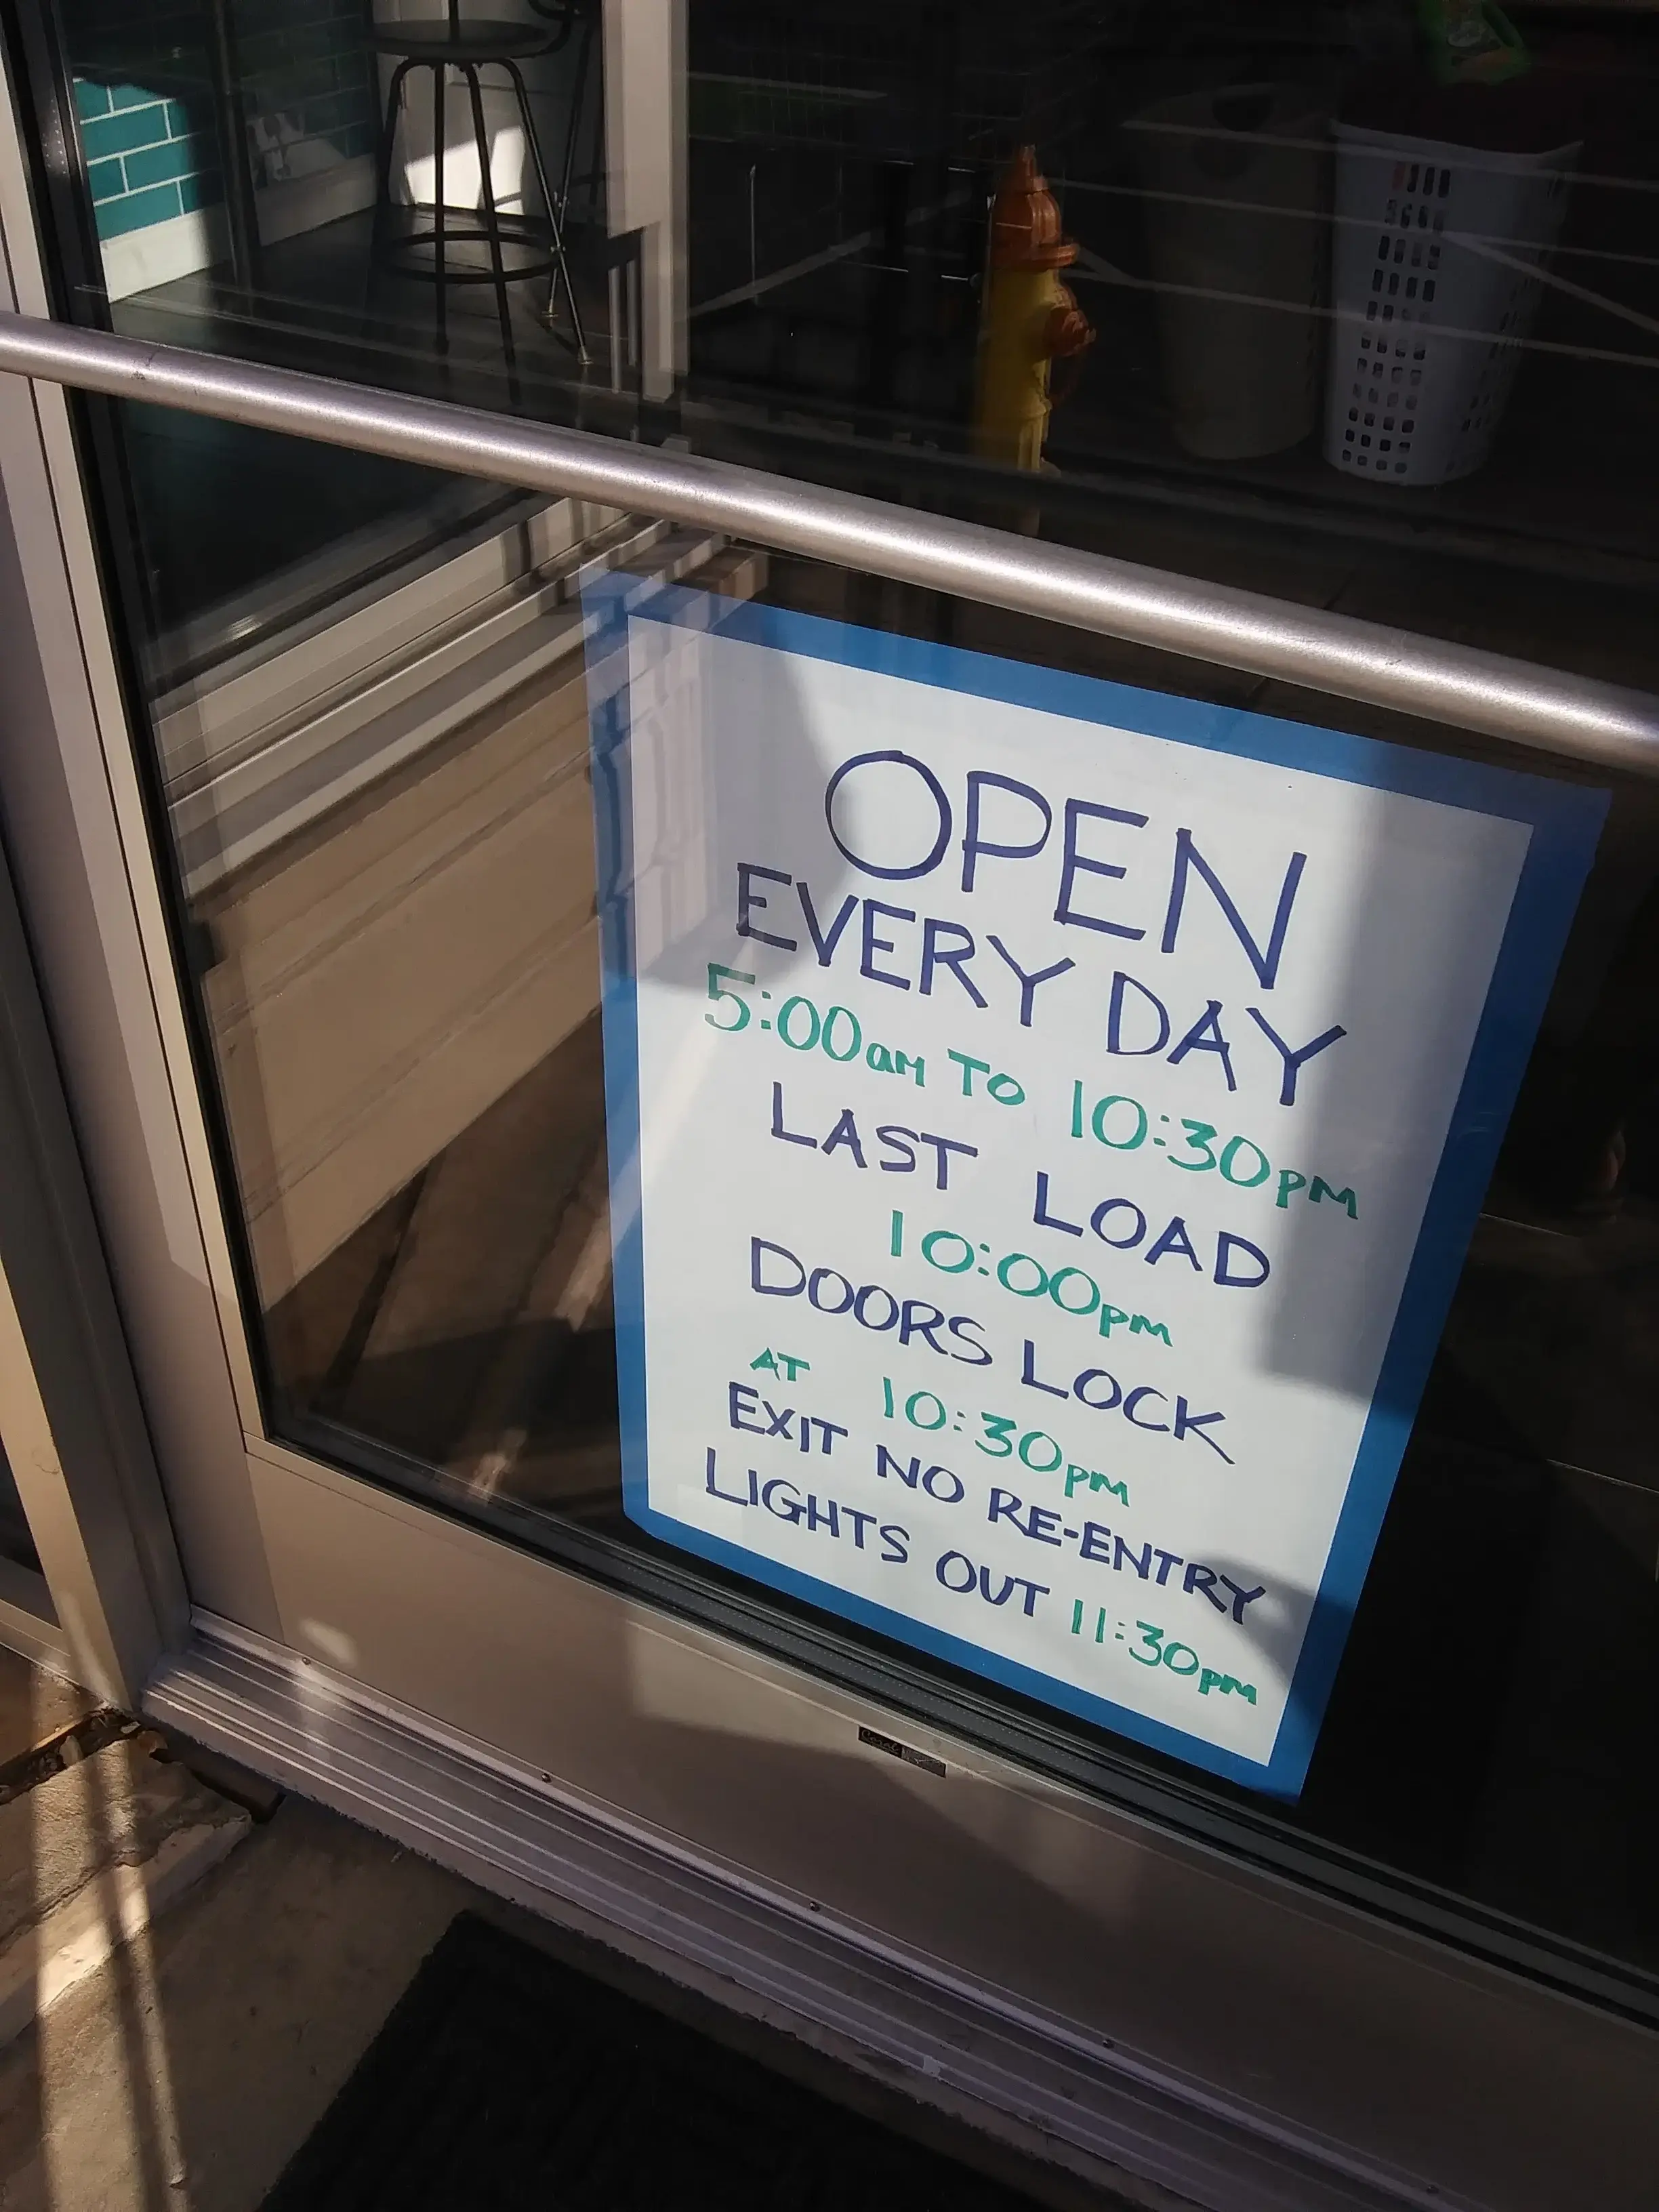 OPEN
EVERY DAY
5:00am TO 10:30pm
LAST LOAD
10:00pm
DOORS LOCK
AT 10:30pm
EXIT NO RE-ENTRY
LIGHTS OUT 11:30pm